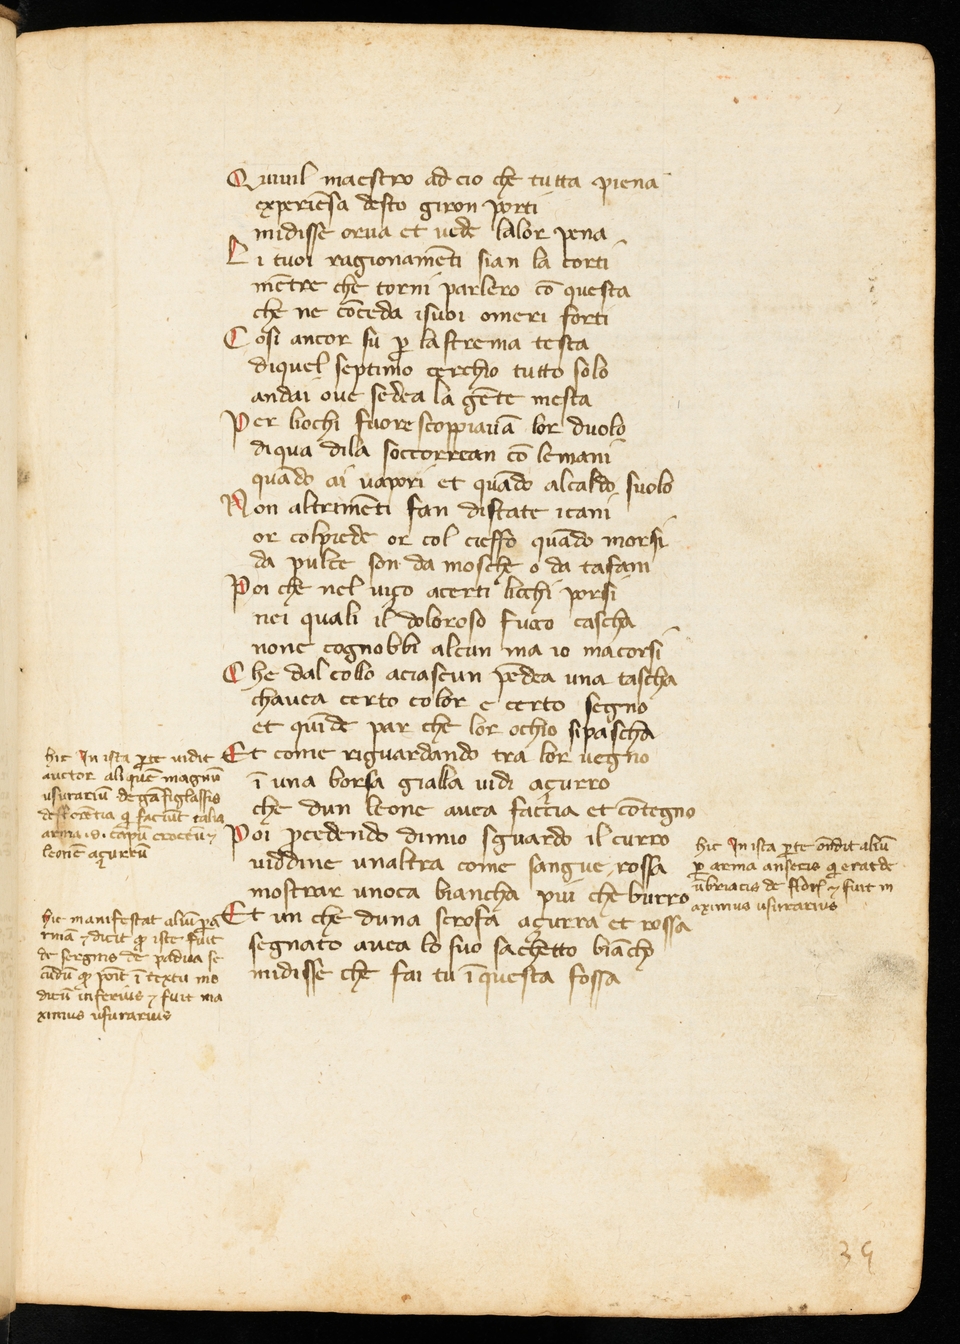 Quiuil maestro ad cio che tutta piena
experiēsa desto giron porti
midisse orua et uede lalor pena
Li tuoi ragionamēti sian la corti
mētre che torni parlero cō questa
che ne cōceda isuoi omeri forti
Cosi ancor su p̲ la strema testa
diquel septimo cerchio tutto solo
andai oue sedea la gēte mesta
Per liochi fuore scoppiauā lor duolo
diqua dila soccorrean cō lemani
quādo ai uapori et quādo alcaldo suolo
Non altrimēti fan distate icani
or colpiede or col cieffo quādo morsi
da pulce son da mosche o da tafani
Poi che nel uiço acerti licchi porsi
nei quali il doloroso fuoco cascha
none cognobbi alcun ma io macorsi
Che dal collo aciascun pēdea una tascha
chauea certo color e certo segno
et quīde par che lor ochio sipascha
Et come riguardando tra lor uegno
ī una borsa gialla uidi açurro
che dun leone auea faccia et cōtegno
Poi p̲cedendo dimio sguardo il curro
uiddine unaltra come sangue rossa
mostrar unoca biancha piu che burro
Et un che duna scrofa açurra et rossa
segnato auea lo suo sachetto biācho
midisse che fai tu ī questa fossa
hic In ista p̲te uidit
auctor aliquē magnū
usurariū de gāfigliassis
de florētia q̄ faciūt talia
arma .i.d. cāpū croceū ⁊
leonē açureū
hic In ista p̲te ondit aliū
p̲ arma anseris q̄ erat de
ūbriacis de flor̄ ⁊ fuit m
aximus usurarius
hic manifestat aliū p̲ a
rma ⁊ dicit q̄ iste fuit
de segnis de padua se
cūdū q̄ pōit ī textu mo
dicū inferius ⁊ fuit ma
ximus usurarius
39